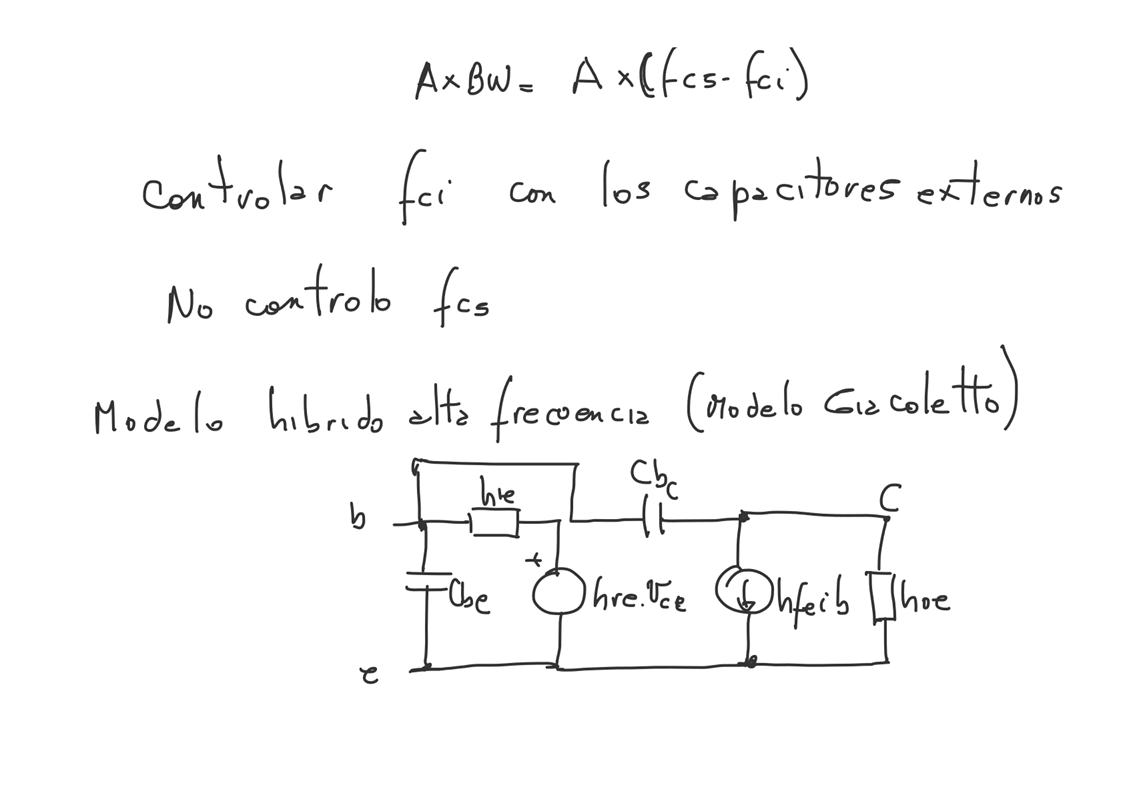 A×BW= A×(fcs-fci)
Controlar fci con los capacitores externos
No controlo fcs
Modelo hibrido alta frecuencia (Modelo Giacoletto)
Cbc
hie
C
b
+
Cbe
hre.Vce
hfeib
hoe
e